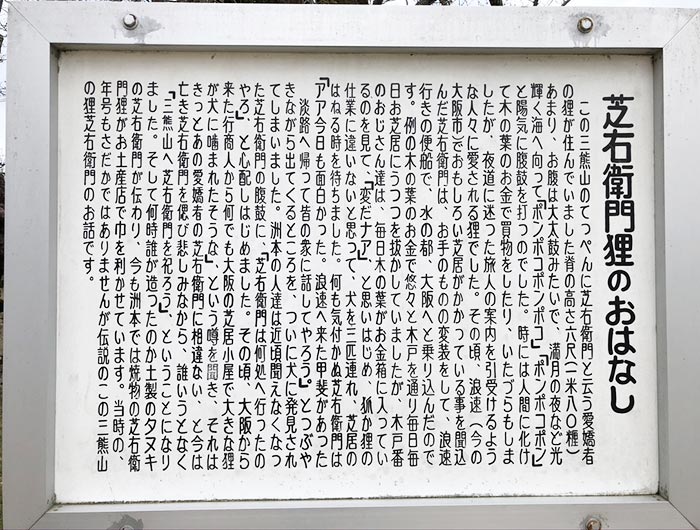 芝右衛門狸のおはなし
この三熊山のてっぺんに芝右衛門と云う愛嬌者
の狸が住んでいました脊の高さ六尺(一米八〇糎)
あまり、お腹は大太鼓みたいで、満月の夜など光
輝く海へ向って「ポンポコポンポコ」「ポンポコポン」
と陽気に腹鼓を打つのでした。時には人間に化け
て木の葉のお金で買物をしたり、いたづらもしま
したが、夜道に迷った旅人の案内を引受けるよう
な人々に愛される狸でした。その頃、浪速(今の
大阪市)でおもしろい芝居がかかっている事を聞込
んだ芝右衛門は、お手のものの変装をして、浪速
行きの便船で、水の都、大阪へと乗り込んだので
す。例の木の葉のお金で悠々と木戸を通り毎日毎
日お芝居にうつつを抜かしていましたが、木戸番
のおじさん達は、毎日木の葉がお金箱に入ってい
るのを見て、「変だナァ」、と思いはじめ、狐か狸の
仕業に違いないと思って、犬を三匹連れ、芝居の
はねる時を待ちました。何も気付かぬ芝右衛門は
「アア今日も面白かった。浪速へ来た甲斐があった
淡路へ帰って皆の衆に話してやろう」。とつぶや
きながら出てくるところを、ついに犬に発見され
てしまいました。洲本の人達は近頃聞えなくなっ
た芝右衛門の腹鼓に、「芝右衛門は何処へ行ったの
やろ」、と心配しはじめました。その頃、大阪から
来た行商人から何でも大阪の芝居小屋で大きな狸
が犬に噛まれたそうな」、という噂を聞き、それは
きっとあの愛嬌者の芝右衛門に相違ない、と今は
亡き芝右衛門を偲び悲しみながら、誰いうとなく
「三熊山へ芝右衛門を祀ろう」、ということになり
ました。そして何時誰が造ったのか土製のタヌキ
の芝右衛門が伝わり、今も洲本では焼物の芝右衛
門狸がお土産店で巾を利かせています。当時の、
年号もさだかではありませんが伝説のこの三熊山
の狸芝右衛門のお話です。